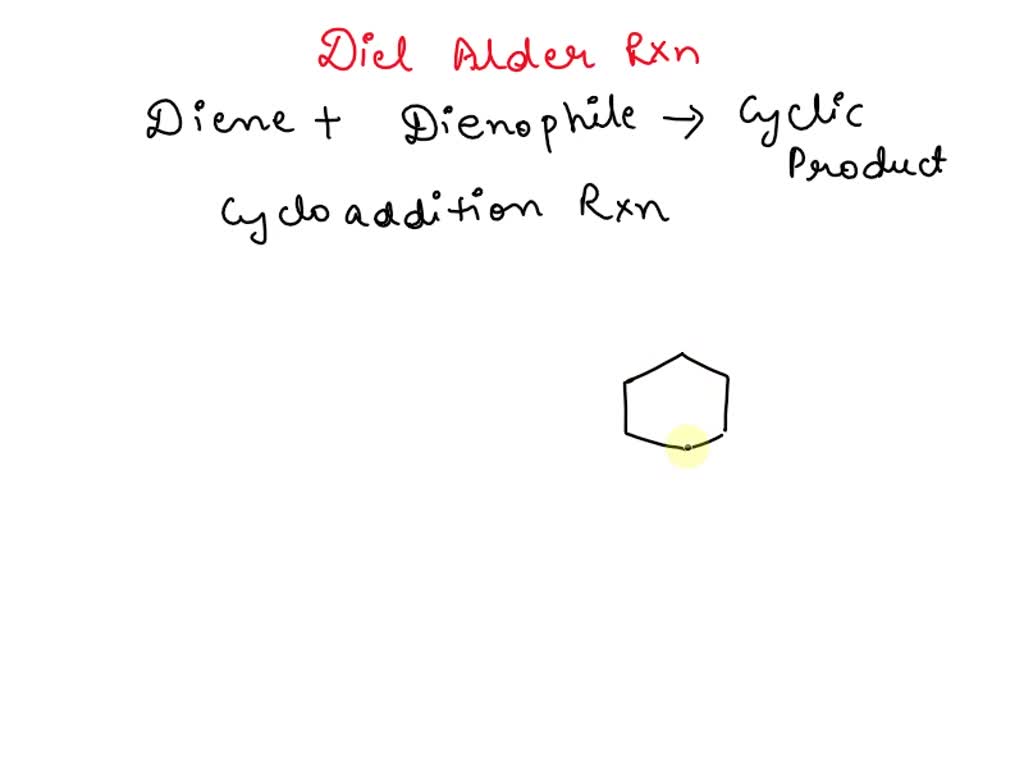 Diel Alder Rxn
Diene + Dienophile → Cyclic
Product
Cycloaddition Rxn